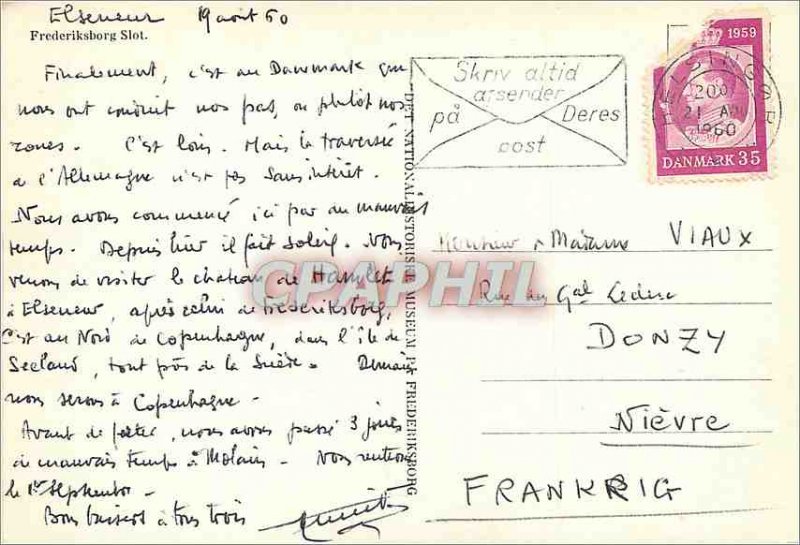 Elseneur 19 août 60
Frederiksborg Slot.
Finalement, c'est au Danemark que
nous ont conduit nos pas, ou plutôt nos
roues. C'est loin. Mais la traversée
de l'Allemagne n'est pas sans intérêt.
Nous avons commencé ici par du mauvais
temps. Depuis hier il fait soleil. Nous
venons de visiter le château de Hamlet
à Elseneur, après celui de Frederiksborg,
C'est au Nord de Copenhague, dans l'île de
Seeland, tout près de la Suède. Demain
nous serons à Copenhague -
Avant de, nous avons passé 3 jours
de mauvais temps à Molain. Nous rentrons
le 1er septembre -
Bons baisers à tous trois
DET NATIONALHISTORISKE MUSEUM PAA FREDERIKSBORG
Skriv altid
afsender
på Deres
post
1959
HELSINGØR
20
21
1960
DANMARK 35
Monsieur & Madame VIAUX
Rue du Gal Leclerc
DONZY
Nièvre
FRANKRIG
CPAPHIL